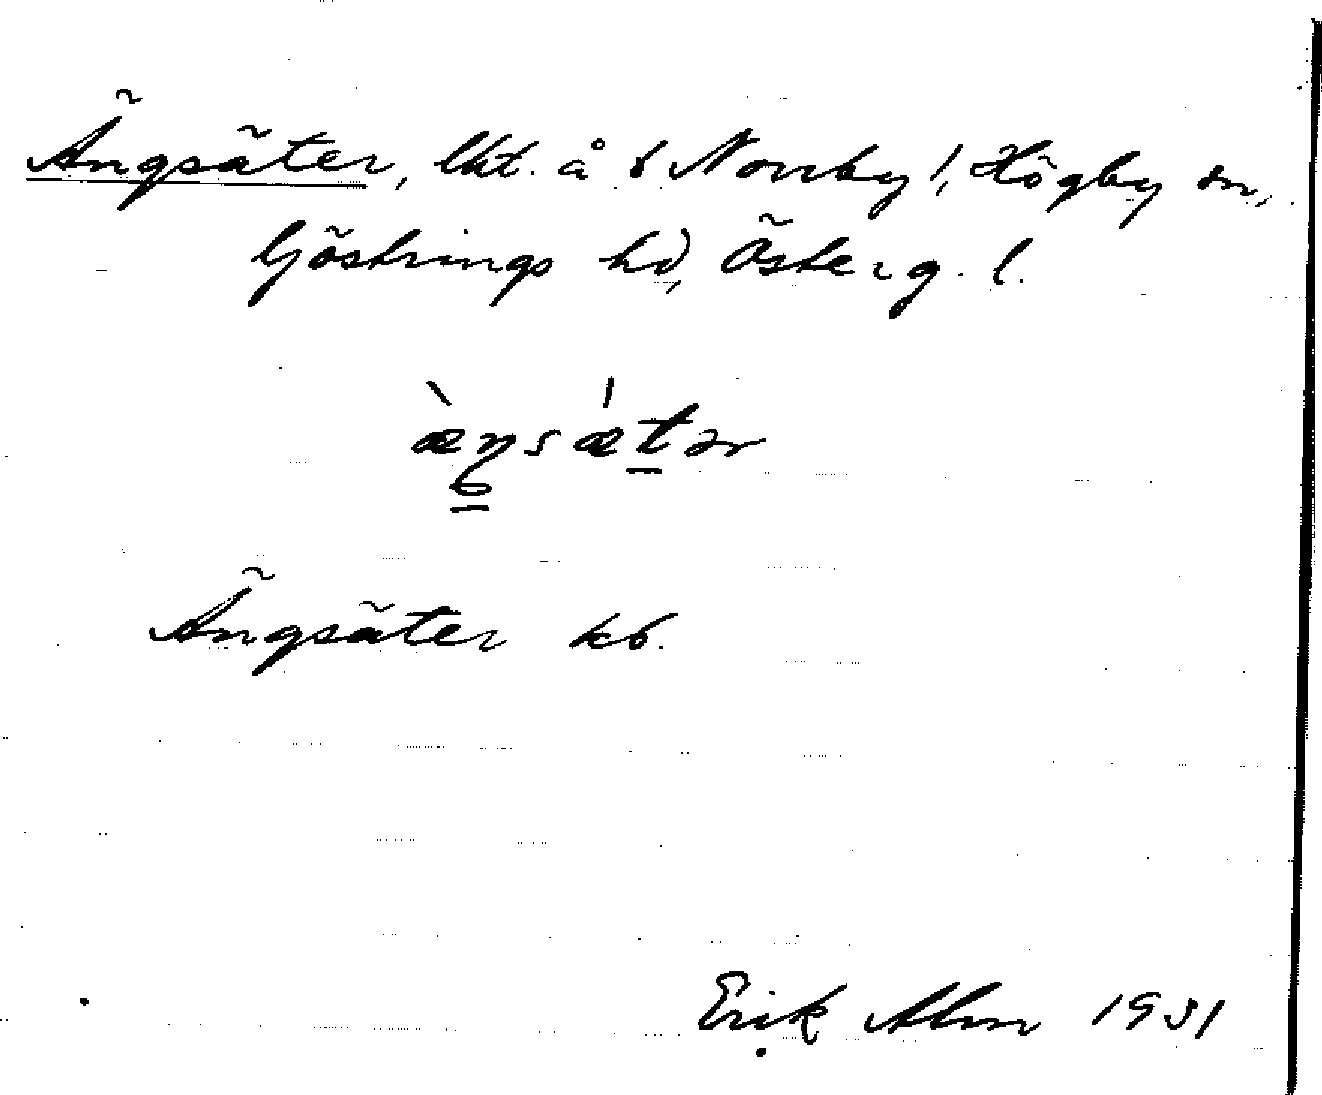 Ängsäter, lht. å Norrby !, Högby sn,
Göstrings hd, Österg. l.
æ̀ŋsǽtər
Ängsäter kb.
Erik Alm 1931